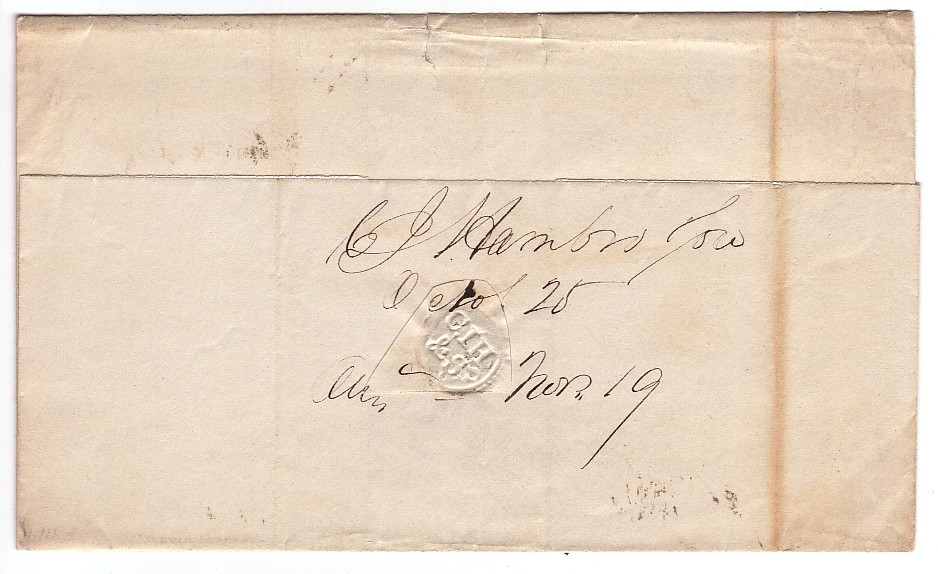 C J Hambro Son
Octob. 25
C.I.H.
& S
Ans Nov. 19